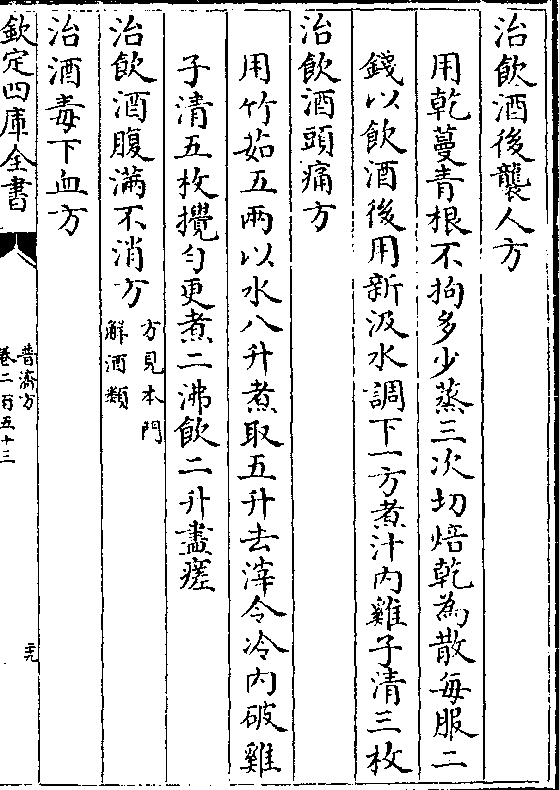 治飲酒後襲人方
用乾蔓青根不拘多少蒸三次切焙乾為散每服二
錢以飲酒後用新汲水調下一方煮汁内雞子清三枚
治飲酒頭痛方
用竹茹五兩以水八升煮取五升去滓令冷内破雞
子清五枚攪勻更煮二沸飲二升盡瘥
治飲酒腹滿不消方
方見本門
解酒類
治酒毒下血方
欽定四庫全書
普濟方
卷二百五十三